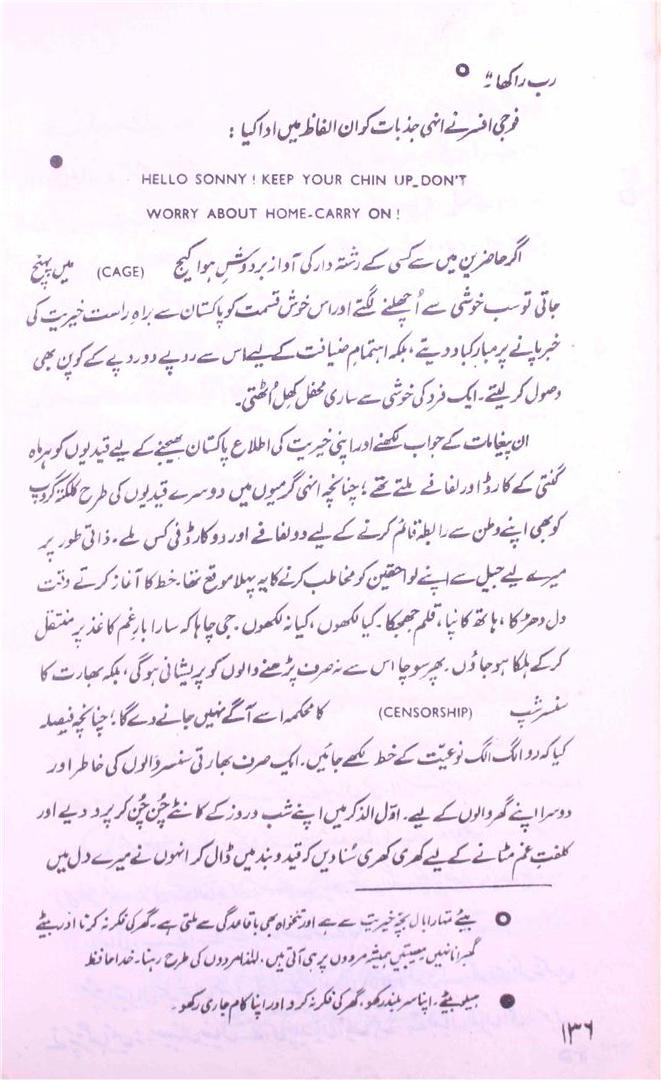 رب راکھا"۔ ○
فوجی افسر نے انہی جذبات کو ان الفاظ میں ادا کیا :
●
HELLO SONNY! KEEP YOUR CHIN UP_DON'T
WORRY ABOUT HOME-CARRY ON!
اگر حاضرین میں سے کسی کے رشتہ دار کی آواز بر دوشِ ہوا کیج (CAGE) میں پہنچ
جاتی تو سب خوشی سے اُچھلنے لگتے اور اس خوش قسمت کو پاکستان سے براہِ راست خیریت کی
خبر پانے پر مبارکباد دیتے، بلکہ اہتمامِ ضیافت کے لیے اس سے روپے دو روپے کے کوپن بھی
وصول کر لیتے۔ ایک فرد کی خوشی سے ساری محفل کھِل اُٹھتی۔
ان پیغامات کے جواب لکھنے اور اپنی خیریت کی اطلاع پاکستان بھیجنے کے لیے قیدیوں کو ہر ماہ
گنتی کے کارڈ اور لفافے ملتے تھے؛ چنانچہ انہی گرمیوں میں دوسرے قیدیوں کی طرح کلکتہ گروپ
کو بھی اپنے وطن سے رابطہ قائم کرنے کے لیے دو لفافے اور دو کارڈ فی کس ملے۔ ذاتی طور پر
میرے لیے جیل سے اپنے لواحقین کو مخاطب کرنے کا یہ پہلا موقع تھا۔ خط کا آغاز کرتے وقت
دل دھڑکا، ہاتھ کانپا، قلم جھجکا۔ کیا لکھوں، کیا نہ لکھوں۔ جی چاہا کہ سارا بارِ غم کاغذ پر منتقل
کر کے ہلکا ہو جاؤں۔ پھر سوچا اس سے نہ صرف پڑھنے والوں کو پریشانی ہو گی، بلکہ بھارت کا
سنسر شپ (CENSORSHIP) کا محکمہ اسے آگے نہیں جانے دے گا؛ چنانچہ فیصلہ
کیا کہ دو الگ الگ نوعیّت کے خط لکھے جائیں۔ ایک صرف بھارتی سنسر والوں کی خاطر اور
دوسرا اپنے گھر والوں کے لیے۔ اوّل الذکر میں اپنے شب و روز کے کانٹے چُن چُن کر پرو دیے اور
کلفتِ غم مٹانے کے لیے کھری کھری سُنا دیں کہ قید و بند میں ڈال کر انہوں نے میرے دل میں
○ بیٹے تمہارا بال بچہ خیریت سے ہے اور تنخواہ بھی باقاعدگی سے ملتی ہے۔ گھر کی فکر نہ کرنا اور بیٹے
گھبرانا نہیں۔ مصیبتیں ہمیشہ مردوں پر ہی آتی ہیں، لہٰذا مردوں کی طرح رہنا۔ خدا حافظ
● ہیلو بیٹے، اپنا سر بلند رکھو، گھر کی فکر نہ کرو اور اپنا کام جاری رکھو۔
۱۳۶